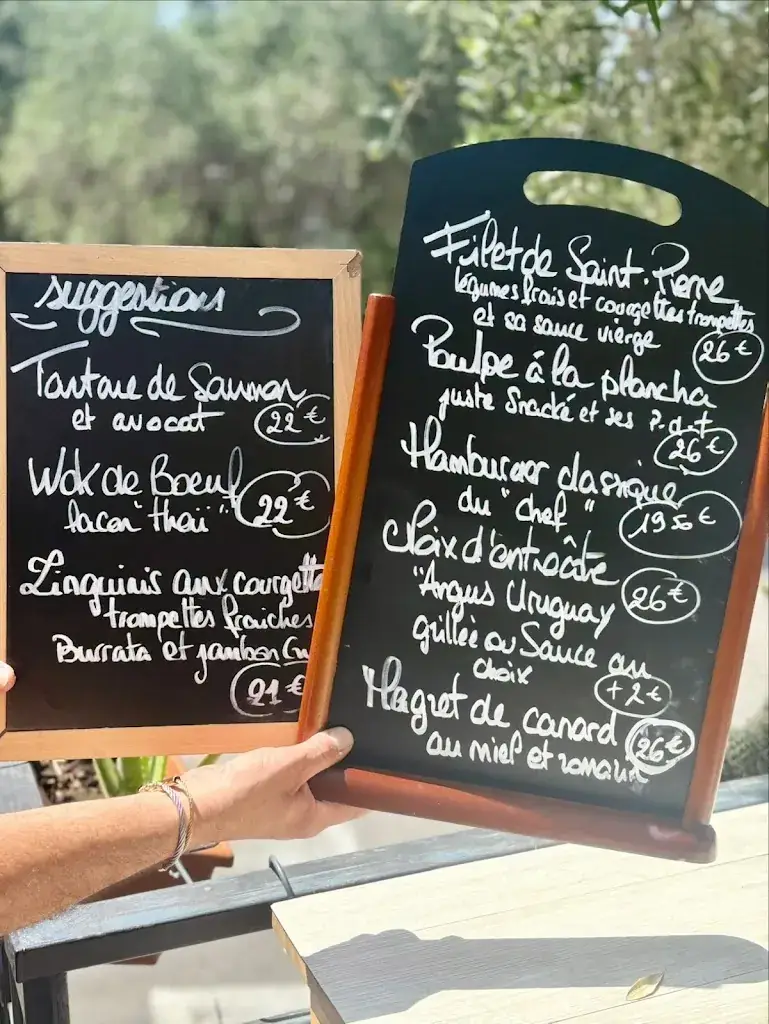 suggestions
Tartare de Saumon
et avocat 22 €
Wok de Boeuf
façon "thaï" 22 €
Linguinis aux courgette
trompettes fraiches
Burrata et jambon Cru
21 €
Filet de Saint-Pierre
légumes frais et courgettes trompettes
et sa sauce vierge 26 €
Poulpe à la plancha
juste Snacké et ses P.d.t
26 €
Hamburger classique
du "chef" 19 50 €
Noix d'entrecôte
"Argus Uruguay 26 €
grillée ou Sauce au
choix +2 €
Magret de canard
au miel et romarin 26 €